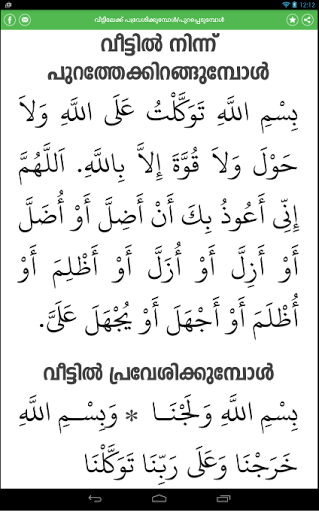 12:12
വീട്ടിലേക്ക് പ്രവേശിക്കുമ്പോൾ/പുറപ്പെടുമ്പോൾ
വീട്ടിൽ നിന്ന്
പുറത്തേക്കിറങ്ങുമ്പോൾ
بِسْمِ اللَّهِ تَوَكَّلْتُ عَلَى اللَّهِ وَلاَ
حَوْلَ وَلاَ قُوَّةَ إِلاَّ بِاللَّهِ. اَللَّهُمَّ
إِنِّي أَعُوذُ بِكَ أَنْ أَضِلَّ أَوْ أُضَلَّ
أَوْ أَزِلَّ أَوْ أُزَلَّ أَوْ أَظْلِمَ أَوْ
أُظْلَمَ أَوْ أَجْهَلَ أَوْ يُجْهَلَ عَلَيَّ.
വീട്ടിൽ പ്രവേശിക്കുമ്പോൾ
بِسْمِ اللَّهِ وَلَجْنَـا * وَبِسْـمِ اللَّهِ
خَرَجْنَا وَعَلَى رَبِّنَا تَوَكَّلْنَا